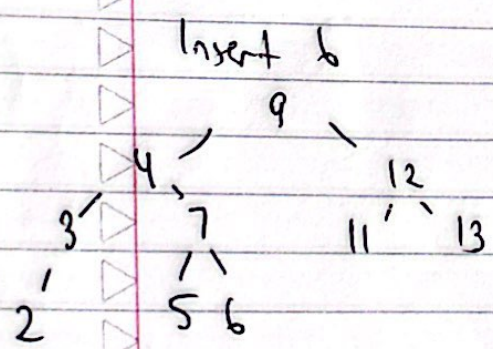 Insert 6
9
4 12
3 7 11 13
2 5 6